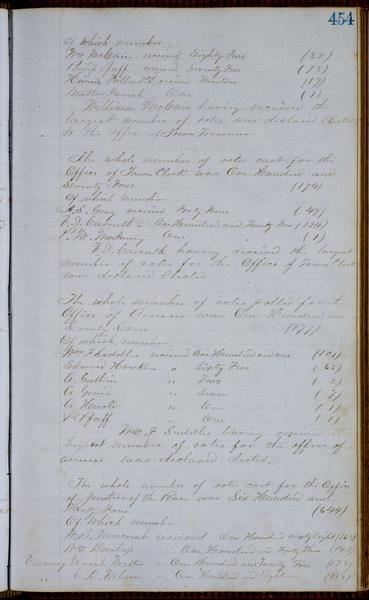 454
Of which number
Wm McCain received Eighty Two (82)
Philip Pfaff received Seventy Five (75)
received Nineteen (19)
One (1)
William McCain having received the
largest number of votes was declared Elected
to the Office of Town Treasurer
The whole number of votes cast for the
Office of Town Clerk was One Hundred and
Seventy Four (174)
Of which number
A. S. Gray received Forty Nine (49)
F. D. Carruth " One Hundred and Twenty Four (124)
One (1)
F. D. Carruth having received the largest
number of votes for the Office of Town Clerk
was declared Elected
The whole number of votes polled for the
Office of Assessor was One Hundred and
Seventy Seven (177)
Of which number
Wm F. Saddler received One Hundred and one (101)
Edward Hawkins " Sixty Five (65)
A Guthrie " Two (2)
A " Seven (7)
A " One (1)
P Pfaff " One (1)
Wm F. Saddler having received the
largest number of votes for the office of
assessor was declared Elected.
The whole number of votes cast for the Office
of Justice of the Peace was Six Hundred and
Forty Four (644)
Of Which number
W. B. Newcomb received One Hundred Sixty Eight (168)
Wm Dunlap " One Hundred and Forty Nine
" One Hundred and Twenty Five (125)
" C. D. Nelson " One Hundred and